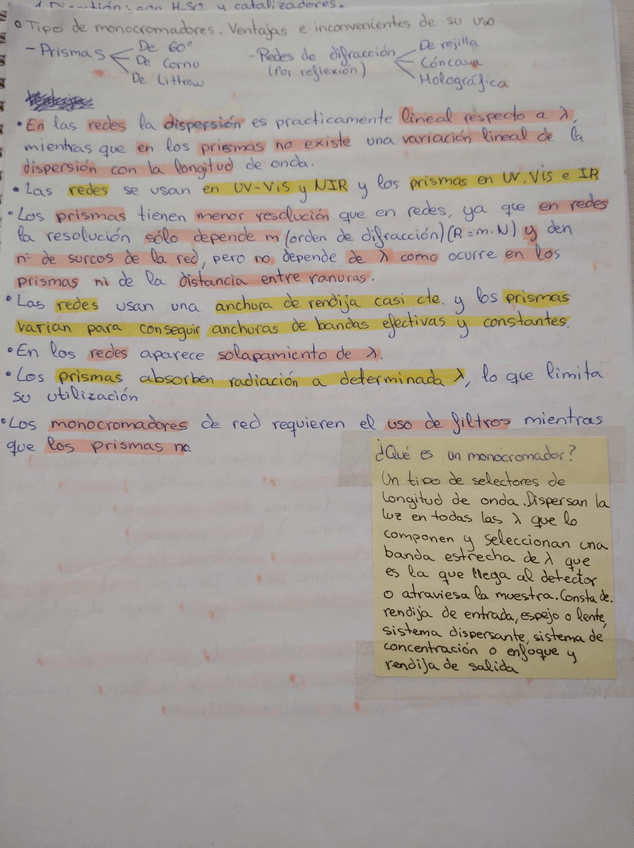 1 Digestión: con H₂SO₄ y catalizadores.
° Tipo de monocromadores. Ventajas e inconvenientes de su uso
- Prismas
De 60°
De Cornu
De Littrow
- Redes de difracción
(Por reflexión)
De rejilla
Cóncava
Holográfica
• En las redes la dispersión es practicamente lineal respecto a λ,
mientras que en los prismas no existe una variación lineal de la
dispersión con la longitud de onda.
• Las redes se usan en UV-Vis y NIR y los prismas en UV, Vis e IR
• Los prismas tienen menor resolución que en redes, ya que en redes
la resolución sólo depende m (orden de difracción) (R=m·N) y den
nº de surcos de la red, pero no depende de λ como ocurre en los
prismas ni de la distancia entre ranuras.
• Las redes usan una anchura de rendija casi cte. y los prismas
varían para conseguir anchuras de bandas efectivas y constantes.
• En los redes aparece solapamiento de λ.
• Los prismas absorben radiación a determinada λ, lo que limita
su utilización
• Los monocromadores de red requieren el uso de filtros mientras
que los prismas no.
¿Qué es un monocromador?
Un tipo de selectores de
longitud de onda. Dispersan la
luz en todas las λ que lo
componen y seleccionan una
banda estrecha de λ que
es la que llega al detector
o atraviesa la muestra. Consta de:
rendija de entrada, espejo o lente,
sistema dispersante, sistema de
concentración o enfoque y
rendija de salida